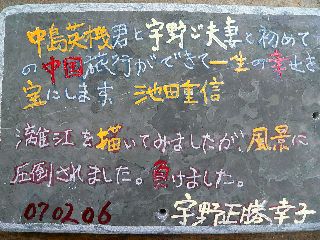 中島英機君と宇野ご夫妻と初めて
の中国旅行ができて一生の幸せを
宝にします。 池田重信
漓江を描いてみましたが、風景に
圧倒されました。負けました。
070206 宇野正勝幸子